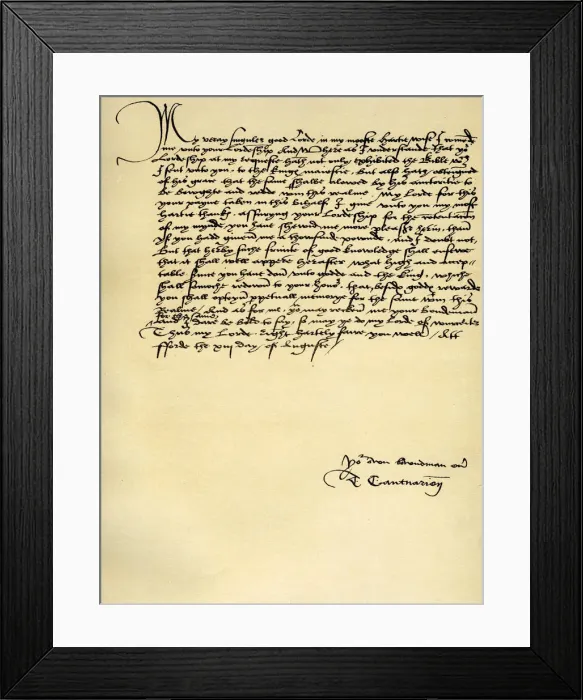 My veray singuler good Lorde, in my moste hartie wise I comend
me unto your Lordeship. And Where as I understande that yor
Lordeship at my requeste hath not only exhibited the Bible wch
I sent unto you, to the kinges maiestie, but also hath obteigned
of his grace that the same shalbe alowed by his auctoritie to
be boughte and redde within this realme. My Lorde for this
your payne taken in this behalf, I give unto you my most
hartie thankes, assuryng your Lordeship for the contentacion
of my mynde, you have shewid me more pleasur herin, than
yf you had given me a thousand pownde, and I doubt not,
But that herby suche fruicte of good knowledge shall ensewe,
that it shall well appere herafter, what high and accep-
table service you have don unto godde and the king, whiche
shall somoche redown to your honor, that, besyds godds rewarde
you shall opteyn perpetuall memorye for the same within this
Realme. And as for me, you may recken me your bondman
for the same
And I dare be bold to say, so may ye do my Lorde of worceter
Thus my Lorde, right hartely fare you well. Att
fforde the xiij day of Auguste
Yor own bowndman ever
T Cantuarien